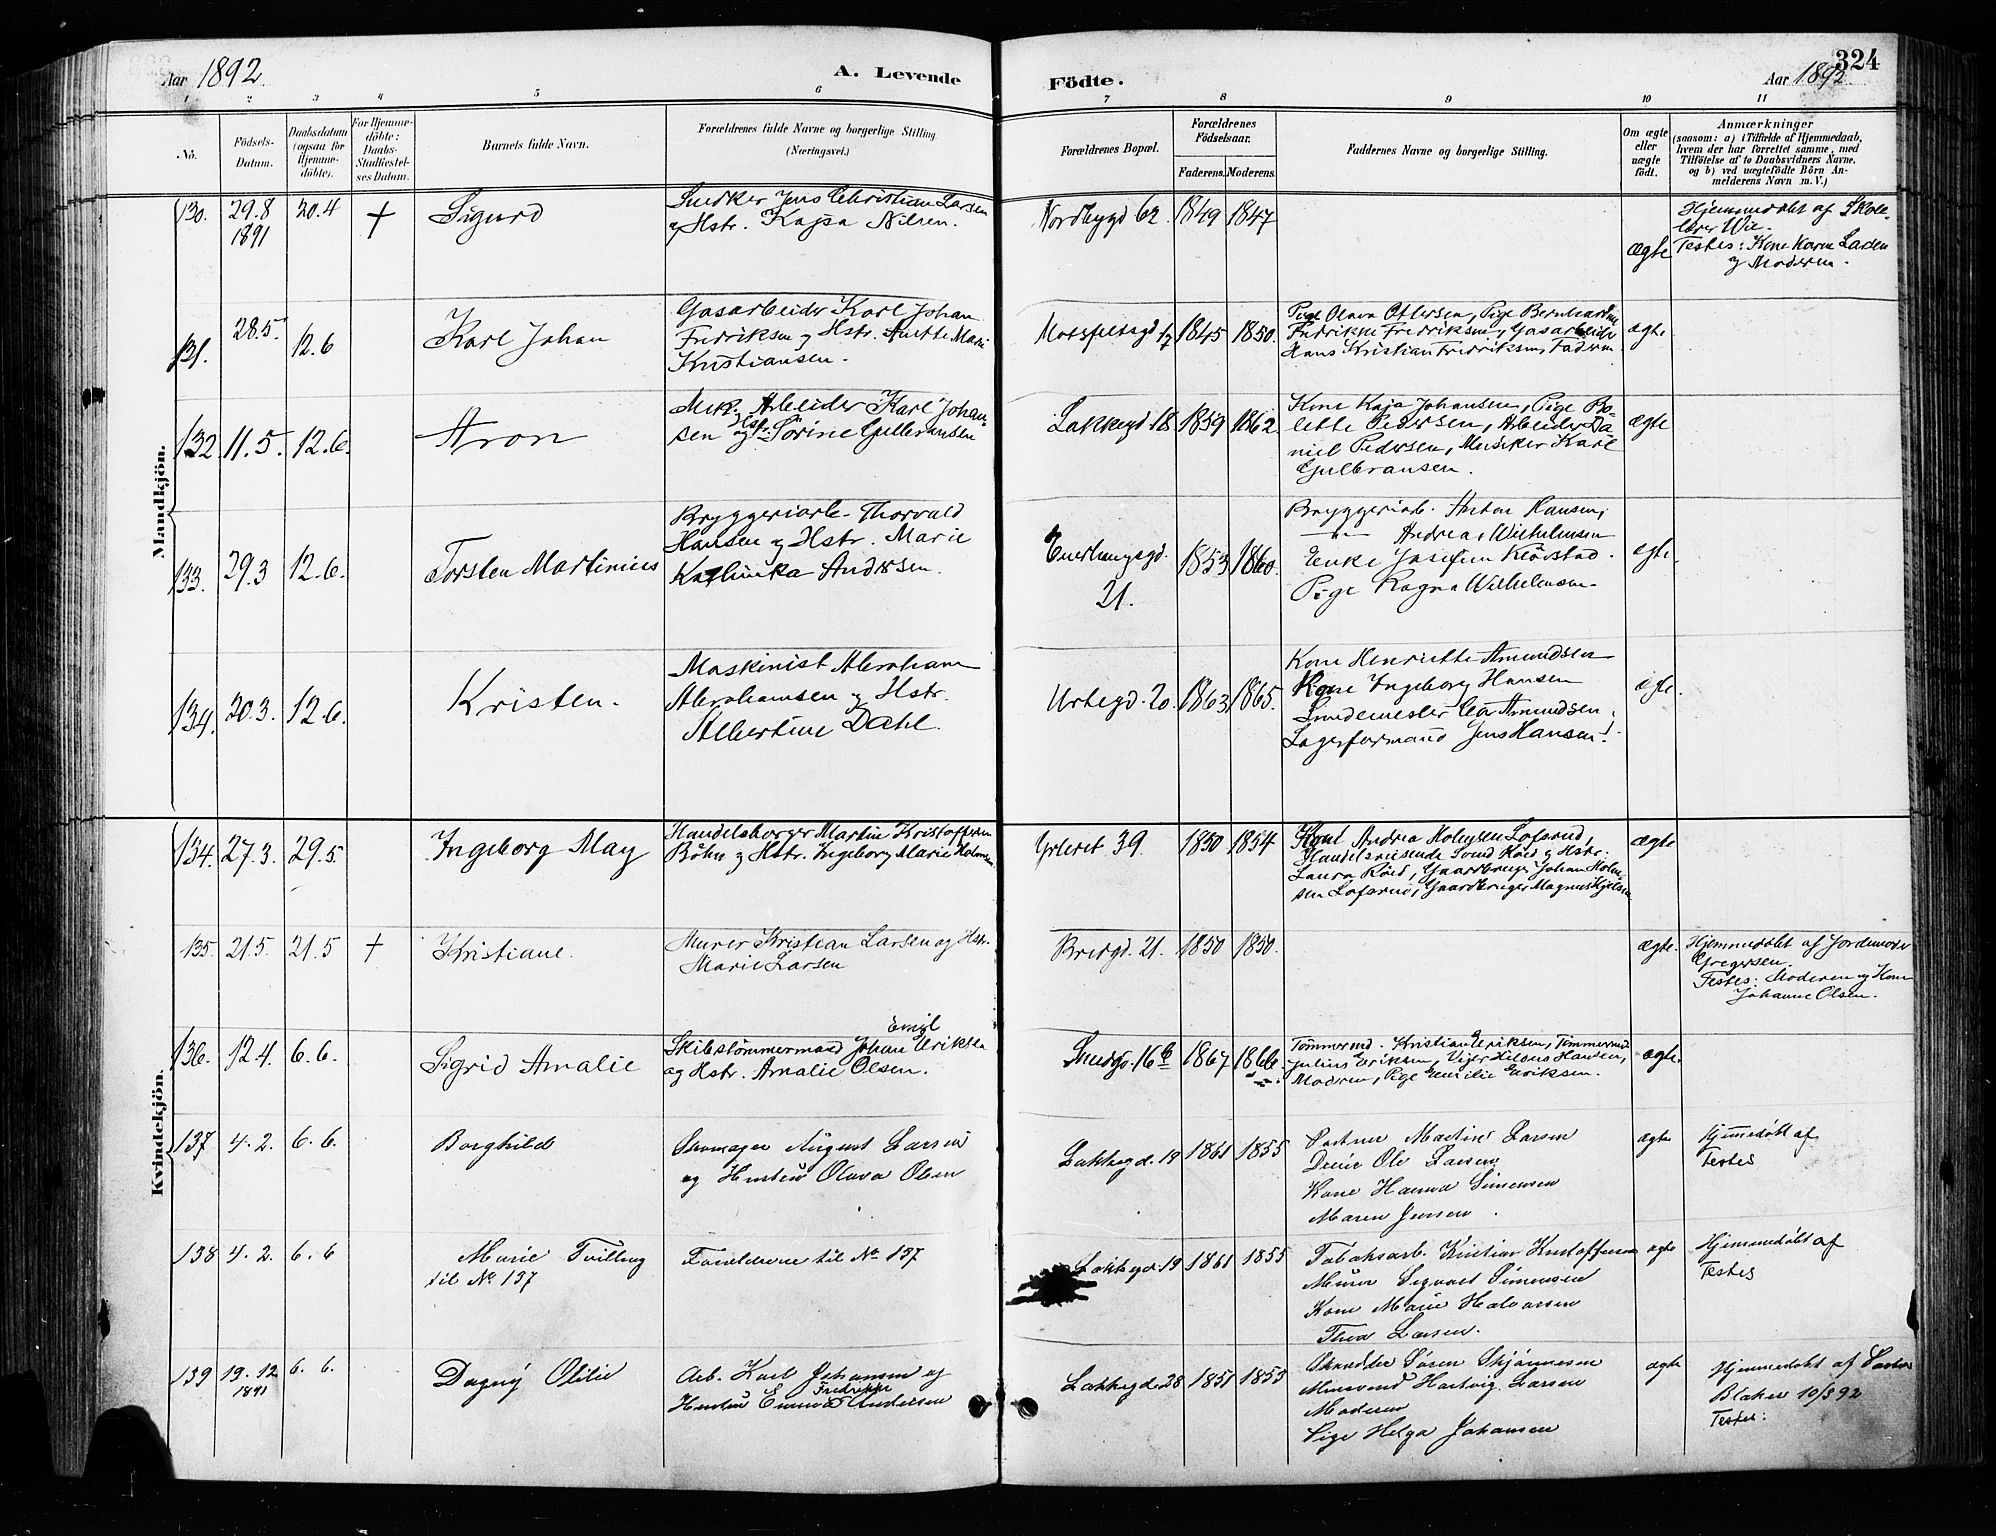 Aar 1892
A. Levende
Födte.
324
Aar 1892
1 2 3 4 5 6 7 8 9 10 11
No.
Födsels-
Datum.
Daabsdatum
(ogsaa for
Hjemme-
döbte).
For Hjemme-
döbte:
Daabs-
Stadfæstel-
ses Datum.
Barnets fulde Navn.
Forældrenes fulde Navne og borgerlige Stilling.
(Næringsvei.)
Forældrenes Bopæl.
Forældrenes
Födselsaar.
Faderens. Moderens.
Faddernes Navne og borgerlige Stilling.
Om ægte
eller
uægte
födt.
Anmærkninger
(saasom: a) i Tilfælde af Hjemmedaab,
hvem der har forrettet samme, med
Tilföielse af to Daabsvidners Navne,
og b) ved uægtefödte Börn An-
melderens Navn m. V.)
Mandkjön.
130. 29.8 1891 20.4 † Sigurd
Snedker Jens Christian Larsen
og Hstr. Kajsa Nilsen.
Nordbygd 62. 1849 1847
ægte
Hjemmedøbt af Skole-
lærer Wie.
Testes: Kone Karen Larsen
og Moderen.
131. 28.5. 12.6 Karl Johan
Gasarbeider Karl Johan
Fredriksen og Hstr. Anette Marie
Kristiansen.
1845 1850.
Pige Olava Ottersen, Pige Bernhardine
Fredrikke Fredriksen, Gasarbeider
Hans Kristian Fredriksen, Faderen.
ægte
132. 11.5. 12.6. Aron
Mek. Arbeider Karl Johan-
sen og Hstr. Sörine Gulbransen
Lakkegd. 18. 1859 1862.
Kone Kaja Johansen, Pige Bo-
lette Pedersen, Arbeider Da-
niel Pedersen, Musiker Karl
Gulbransen.
ægte
133. 29.3 12.6. Torsten Martinius
Bryggeriarb. Thorvald
Hansen og Hstr. Marie
Kathinka Andersen.
Enerhaugsgd.
21.
1853 1860.
Bryggeriarb. Anton Hansen,
—"— Andreas Wilhelmsen
Enke Josefien Kløvstad.
Pige Ragna Wilhelmsen.
ægte.
134. 20.3. 12.6. Kristen.
Maskinist Abraham
Abrahamsen og Hstr.
Albertine Dahl.
Urtegd. 20. 1863 1865.
Kone Henriette Amundsen
Kone Ingeborg Hansen
Smedemester Amundsen.
Lagerformand Jens Hansen.
ægte.
Kvindekjön.
134. 27.3. 29.5. Ingeborg May
Handelsborger Martin Kristoffersen
Böhn og Hstr. Ingeborg Marie Holmsen
39. 1850 1854
Andrea Holmsen Lofsrud,
Handelsreisende Svend Röed og Hstr.
Laura Röed, Gaardbruger Johan Holm-
sen Lofsrud, Gaardbruger Magnus Hjelsen
ægte
135. 21.5. 21.5 † Kristiane.
Murer Kristian Larsen og Hstr.
Marie Larsen
Bredgd. 21. 1850 1850.
ægte.
Hjemmedøbt af Jordemoder
Gregersen.
Testes: Moderen og Kone
Johanne Olsen.
136. 12.4. 6.6. Sigrid Amalie
Skibstömmermand Johan Emil Eriksen
og Hstr. Amalie Olsen.
Smedgd. 16b 1867 1866.
Tömmermd. Kristian Eriksen, Tömmermd.
Julius Eriksen, Hansen,
Moderen, Pige Emilie Eriksen.
ægte.
137 4.2. 6.6. Borghild
Skomager August Larsen
og Hustru Olava Olsen
Lakkegd. 19 1861 1855
Martin Larsen
Ole Larsen
Kone Hanna Simensen
Maren Jensen.
ægte
Hjemmedøbt af
Testes
138 4.2. 6.6 Marie Tvilling
til No. 137
Forældrene til No 137
Lakkegd. 19 1861 1855
Tobaksarb. Kristian Kristoffersen
Murer Sigvart Simensen
Kone Marie Halvorsen
Thea Larsen.
ægte
Hjemmedøbt af
Testes
139 19.12 1891 6.6. Dagny Otilie
Arb. Karl Johansen og
Hustru Emma Fredrikke Andersen
Lakkegd. 28 1851 1855
Skrædder Sören Skjönnesen
Hartvig Larsen
Moderen
Pige Helga Johansen
ægte
Hjemmedøbt af Pastor
Blakar 10/3 92
Testes: